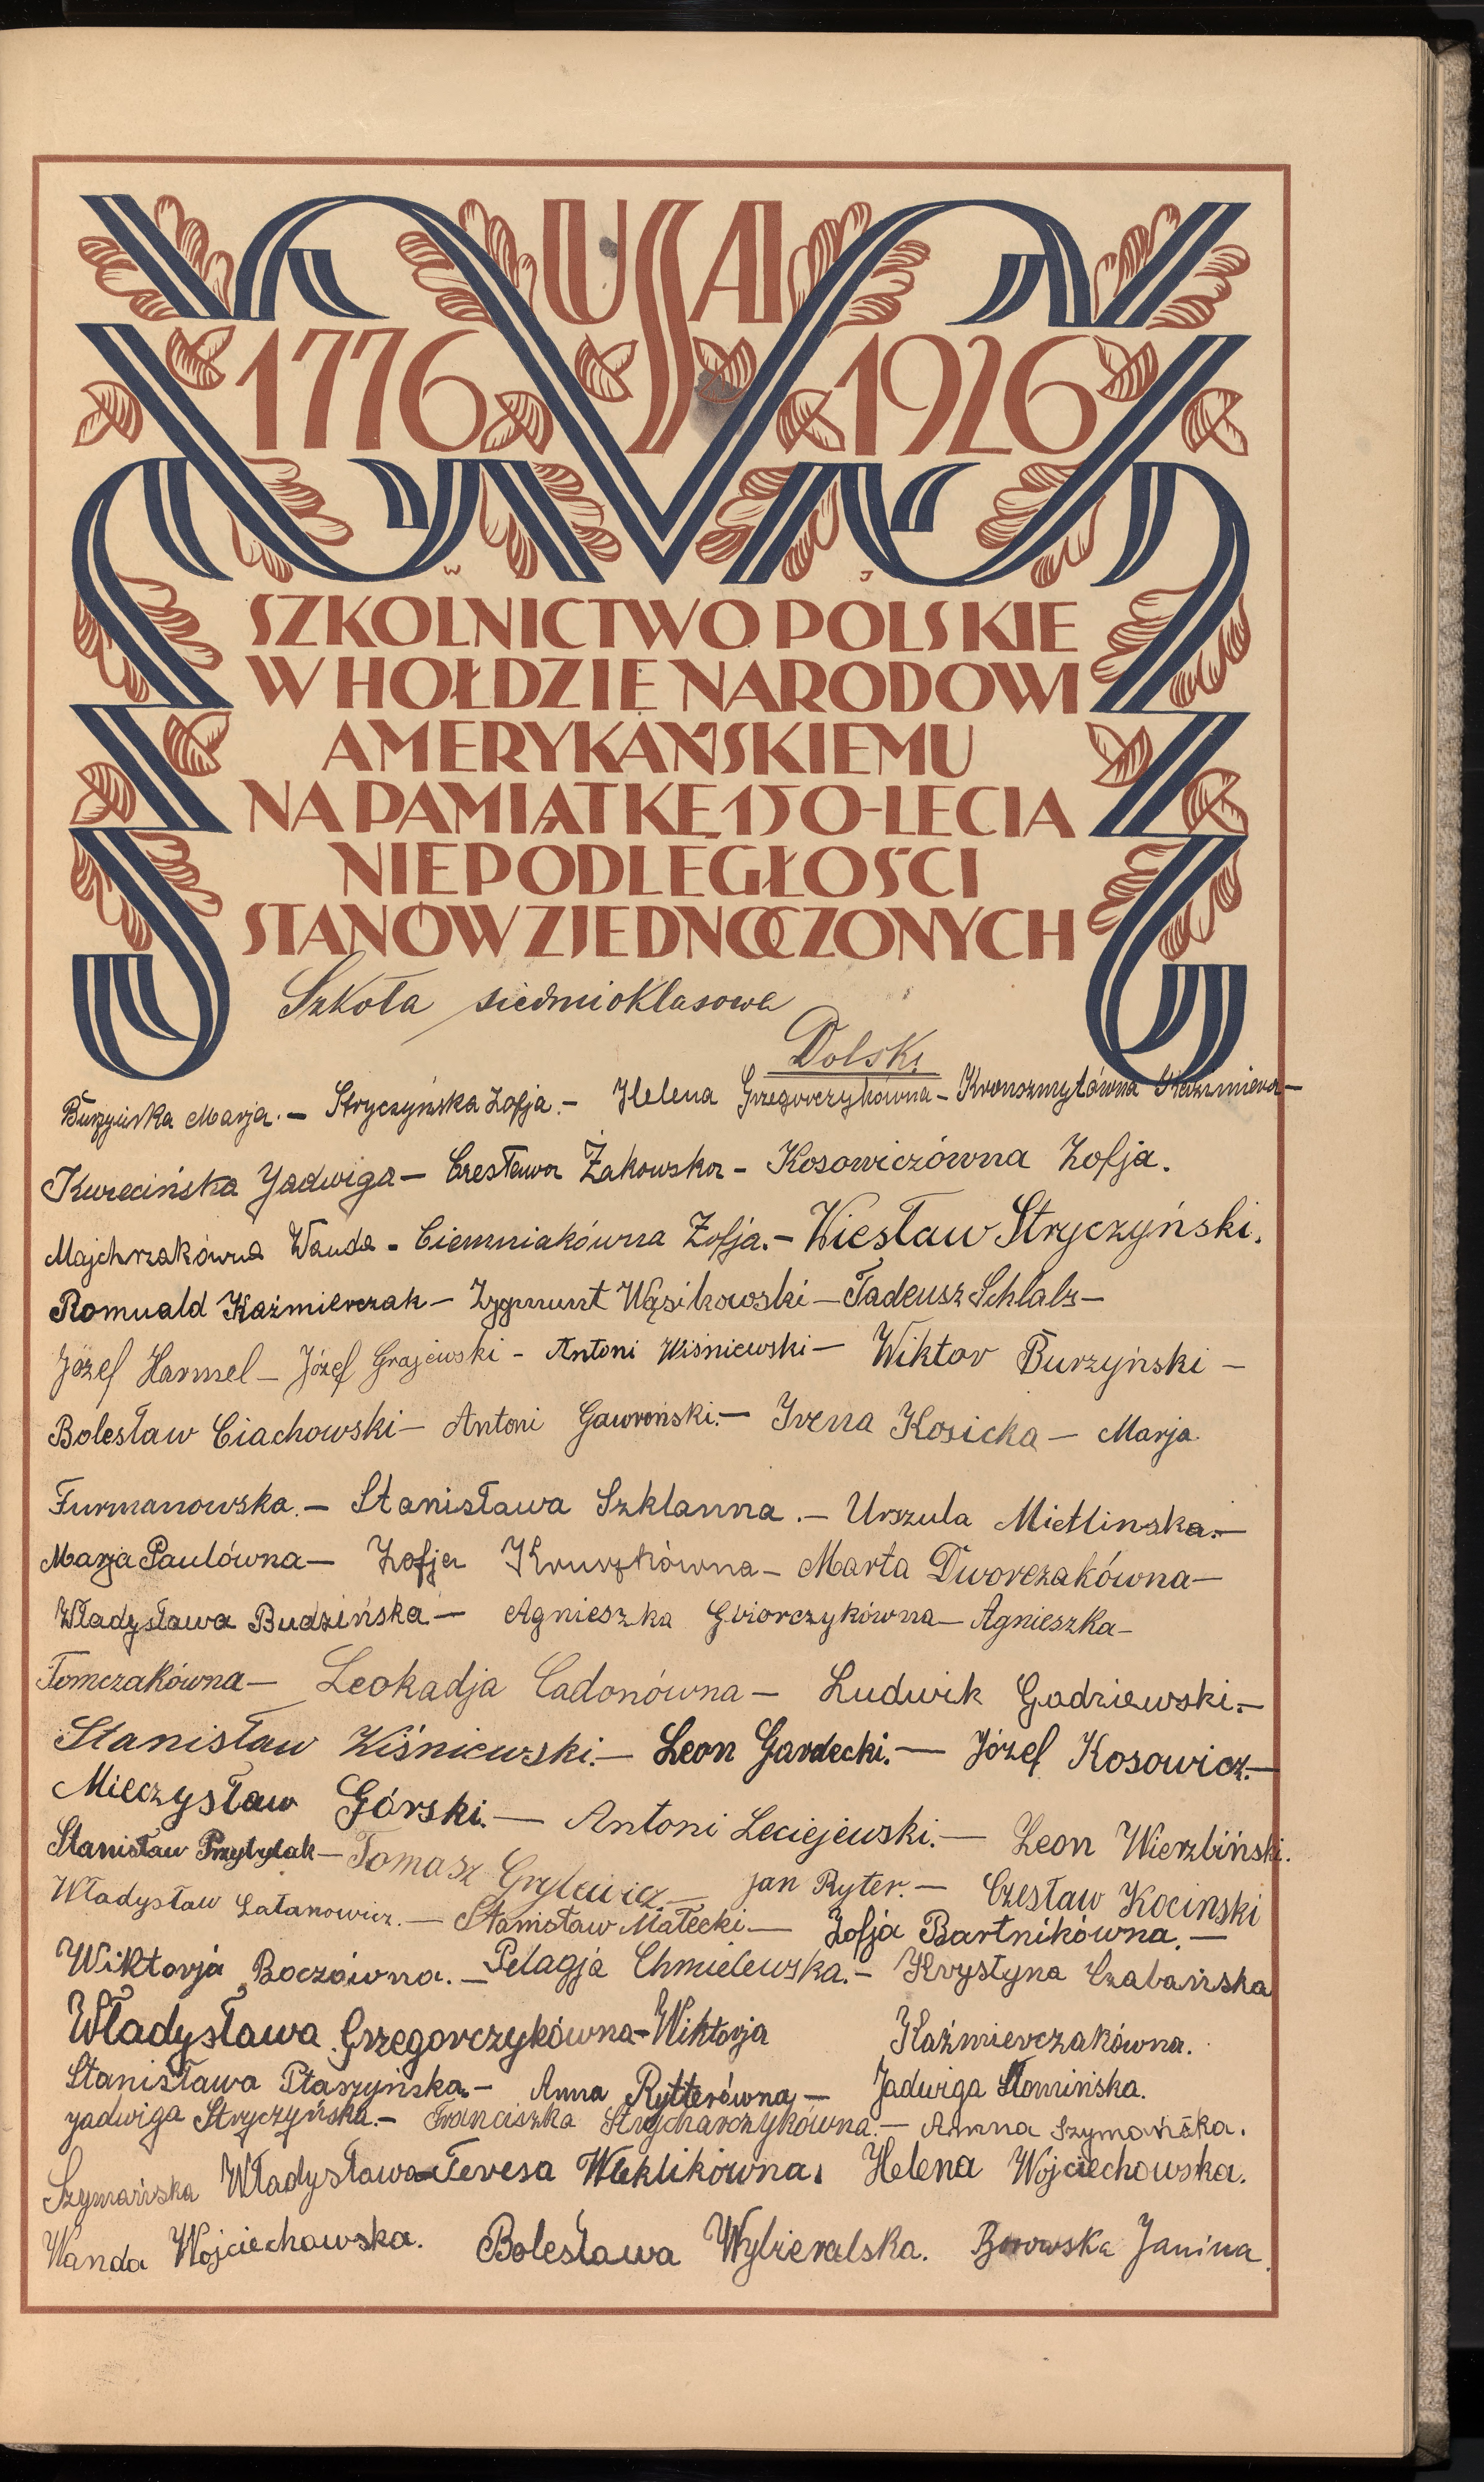 USA
1776 1926
W J
SZKOLNICTWO POLSKIE
W HOŁDZIE NARODOWI
AMERYKAŃSKIEMU
NA PAMIĄTKĘ 150-LECIA
NIEPODLEGŁOŚCI
STANÓW ZJEDNOCZONYCH
Szkoła siedmioklasowa
Dolsk.
Burzyńska Marja. – Stryczyńska Zofja. – Helena Grzegorczykówna –
Kwiecińska Jadwiga – Czesława Żakowska – Kosowiczówna Zofja.
Majchrzakówna Wanda – Ciemniakówna Zofja. – Wiesław Stryczyński.
Romuald Kaźmierczak – Zygmunt Wąsikowski – Tadeusz Schlabs –
Józef Harmel – Józef Grajewski – Antoni Wiśniewski – Wiktor Burzyński –
Bolesław Ciachowski – Antoni Gawroński. – Irena Kosicka – Marja
Furmanowska. – Stanisława Szklanna. – Urszula Mietlinska. –
Marja Paulówna – Zofja Kruszkówna – Marta Dworczakówna –
Władysława Budzińska – Agnieszka Gbiorczykówna – Agnieszka –
Tomczakówna – Leokadja Cadonówna – Ludwik Godziewski. –
Stanisław Wiśniewski. – Leon Gardecki. – Józef Kosowicz. –
Mieczysław Górski. – Antoni Leciejewski. – Leon Wierzbiński.
Stanisław Przybylak – Tomasz Grylewicz – Jan Ryter. – Czesław Kocinski
Władysław Łatanowicz. – Stanisław Małecki – Zofja Bartnikówna. –
Wiktorja Boczówna. – Pelagja Chmielewska. – Krystyna Czabańska
Władysława Grzegorczykówna – Wiktorja Kaźmierczakówna.
Stanisława Ptaszyńska. – Anna Rytterówna – Jadwiga Słomińska.
Jadwiga Stryczyńska. – Franciszka Strycharczykówna. – Anna Szymańska.
Szymańska Władysława – Teresa Weklikówna. Helena Wojciechowska.
Wanda Wojciechowska. Bolesława Wybieralska. Borowska Janina.